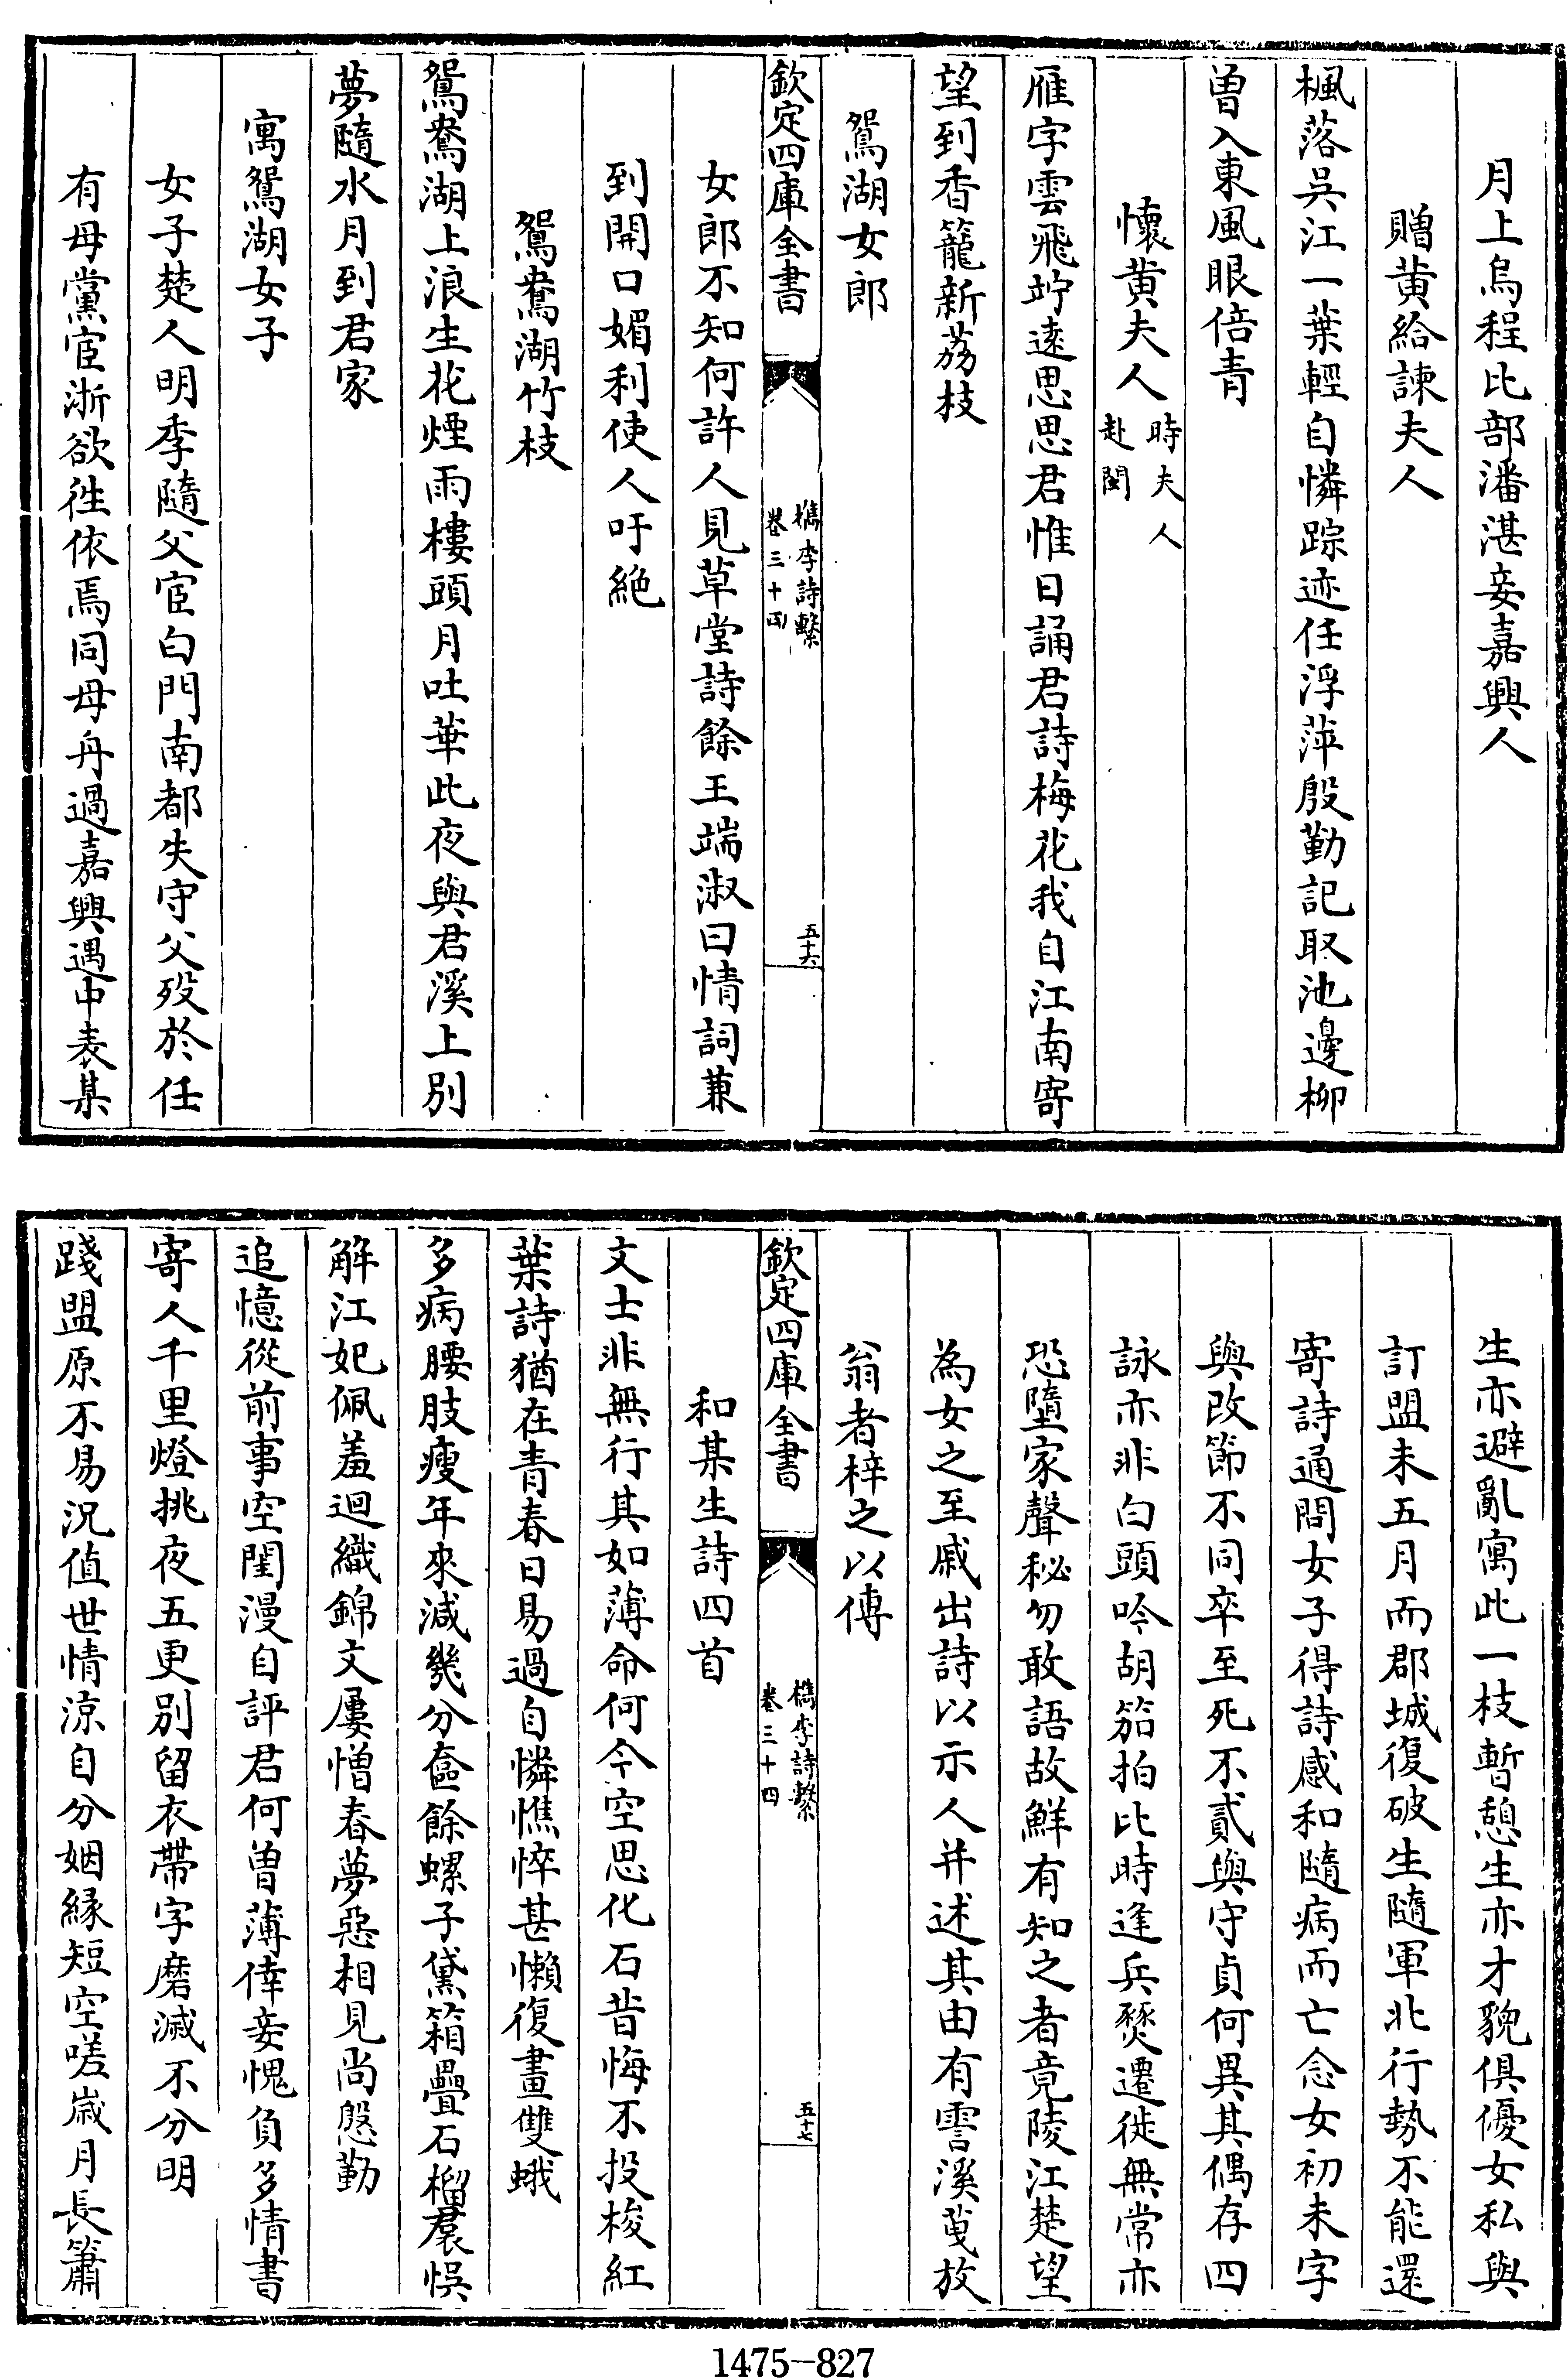 月上烏程比部潘湛妾嘉興人
贈黄給諫夫人
楓落吳江一葉輕自憐踪迹任浮萍殷勤記取池邊柳
曽入東風眼倍青
懷黄夫人時夫人赴閩
雁字雲飛竚遠思思君惟日誦君詩梅花我自江南寄
望到香籠新荔枝
鴛湖女郎
欽定四庫全書
檇李詩繫
卷三十四
五十六
女郎不知何許人見草堂詩餘王端淑曰情詞兼
到開口媚利使人吁絶
鴛鴦湖竹枝
鴛鴦湖上浪生花煙雨樓頭月吐華此夜與君溪上别
夢隨水月到君家
寓鴛湖女子
女子楚人明季隨父宦白門南都失守父殁於任
有母黨宦浙欲徃依焉同母舟過嘉興遇中表某
生亦避亂寓此一枝暫憩生亦才貌俱優女私與
訂盟未五月而郡城復破生隨軍北行勢不能還
寄詩通問女子得詩感和隨病而亡念女初未字
與改節不同卒至死不貳與守貞何異其偶存四
詠亦非白頭吟胡笳拍比時逢兵燹遷徙無常亦
恐墮家聲秘勿敢語故鮮有知之者竟陵江楚望
為女之至戚出詩以示人并述其由有霅溪蒐放
翁者梓之以傳
欽定四庫全書
檇李詩繫
卷三十四
五十七
和某生詩四首
文士非無行其如薄命何今空思化石昔悔不投梭紅
葉詩猶在青春日易過自憐憔悴甚懶復畫雙蛾
多病腰肢瘦年來減幾分奩餘螺子黛箱疊石榴裠悞
解江妃佩羞迴織錦文屢憎春夢惡相見尚慇勤
追憶從前事空閨漫自評君何曽薄倖妾愧負多情書
寄人千里燈挑夜五更别留衣帶字磨滅不分明
踐盟原不易況值世情涼自分姻縁短空嗟歲月長簫
1475-827